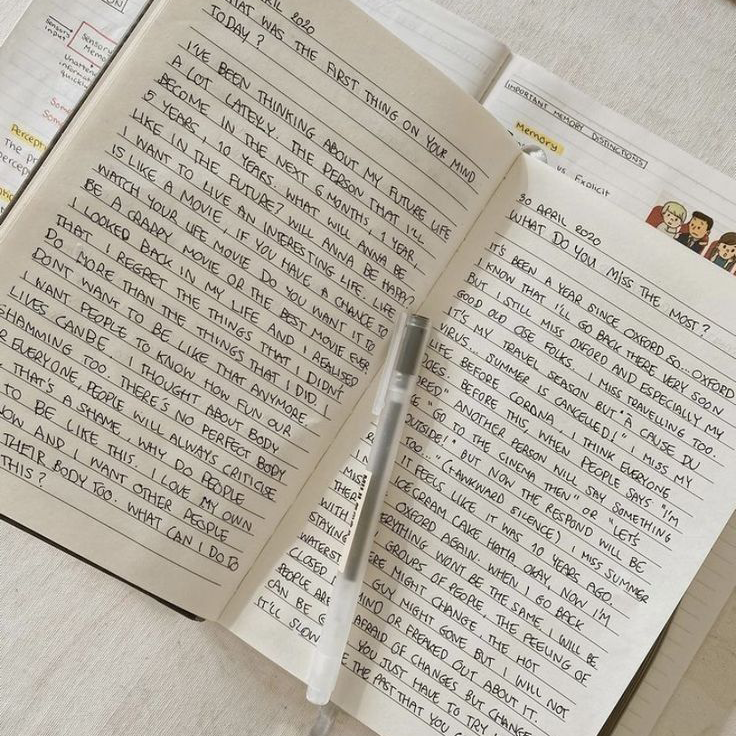 APRIL 2020
WHAT WAS THE FIRST THING ON YOUR MIND
TODAY?
I'VE BEEN THINKING ABOUT MY FUTURE LIFE
A LOT LATELY. THE PERSON THAT I'LL
BECOME IN THE NEXT 6 MONTHS, 1 YEAR,
5 YEARS, 10 YEARS. WHAT WILL ANNA BE
LIKE IN THE FUTURE? WILL ANNA BE HAPPY?
I WANT TO LIVE AN INTERESTING LIFE. LIFE
IS LIKE A MOVIE, IF YOU HAVE A CHANCE TO
WATCH YOUR LIFE MOVIE DO YOU WANT IT TO
BE A CRAPPY MOVIE OR THE BEST MOVIE EVER
I LOOKED BACK IN MY LIFE AND I REALISED
THAT I REGRET THE THINGS THAT I DIDN'T
DO MORE THAN THE THINGS THAT I DID. I
DONT WANT TO BE LIKE THAT ANYMORE.
I WANT PEOPLE TO KNOW HOW FUN OUR
LIVES CANBE. I THOUGHT ABOUT BODY
SHAMMING TOO. THERE'S NO PERFECT BODY
EVERYONE, PEOPLE WILL ALWAYS CRITICISE
THAT'S A SHAME, WHY DO PEOPLE
TO BE LIKE THIS. I LOVE MY OWN
NOW AND I WANT OTHER PEOPLE
THEIR BODY TOO. WHAT CAN I DO TO
THIS?
30 APRIL 2020
WHAT DO YOU MISS THE MOST?
IT'S BEEN A YEAR SINCE OXFORD SO... OXFORD
I KNOW THAT I'LL GO BACK THERE VERY SOON
BUT I STILL MISS OXFORD AND ESPECIALLY MY
GOOD OLD CISE FOLKS. I MISS TRAVELLING TOO.
IT'S MY TRAVEL SEASON BUT "À CAUSE DU
VIRUS... SUMMER IS CANCELLED!" I MISS MY
LIFE BEFORE CORONA. I THINK EVERYONE
DOES. BEFORE THIS, WHEN PEOPLE SAYS "I'M
BORED" ANOTHER PERSON WILL SAY SOMETHING
"GO TO THE CINEMA THEN" OR "LET'S
OUTSIDE!" BUT NOW THE RESPOND WILL BE
TOO..." (+AWKWARD SILENCE) I MISS SUMMER
IT FEELS LIKE IT WAS 10 YEARS AGO.
MISS ICECREAM CAKE HATTA OKAY, NOW I'M
THERE OXFORD AGAIN. WHEN I GO BACK
WITH EVERYTHING WON'T BE THE SAME, I WILL BE
STAYING GROUPS OF PEOPLE, THE FEELING OF
MIGHT CHANGE, THE HOT
CLOSED GUY MIGHT GONE BUT I WILL NOT
PEOPLE ARE MIND OR FREAKED OUT ABOUT IT.
CAN BE AFRAID OF CHANGES BUT CHANGE
IT'LL SLOW YOU JUST HAVE TO TRY
THE PAST THAT YOU
SENSORY INPUT
Sensory
Memo
Unatten
informati
quickly
Percept
The pr
percep
IMPORTANT MEMORY DISTINCTIONS
Memory
vs. Explicit